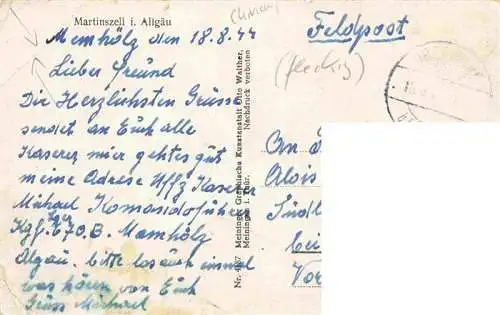 Martinszell i. Allgäu
Memhölz den 18.8.44
Lieber freund
Die Herzlichsten Grüsse
sendet an Euch alle
Kaserer mier geht es gut
meine Adresse Uffz Kaserer
Michael Komandoführer
Kgf. Lager 670.B. Memhölz
Algäu. bitte las auch einmal
was hören von Euch
Grüss Michael
Nr. 4157 Meininger Graphische Kunstanstalt Otto Walther,
Meiningen i. Thür. Nachdruck verboten
Feldpost
(fleckig)
An
Alois
Südl
bei
Vor